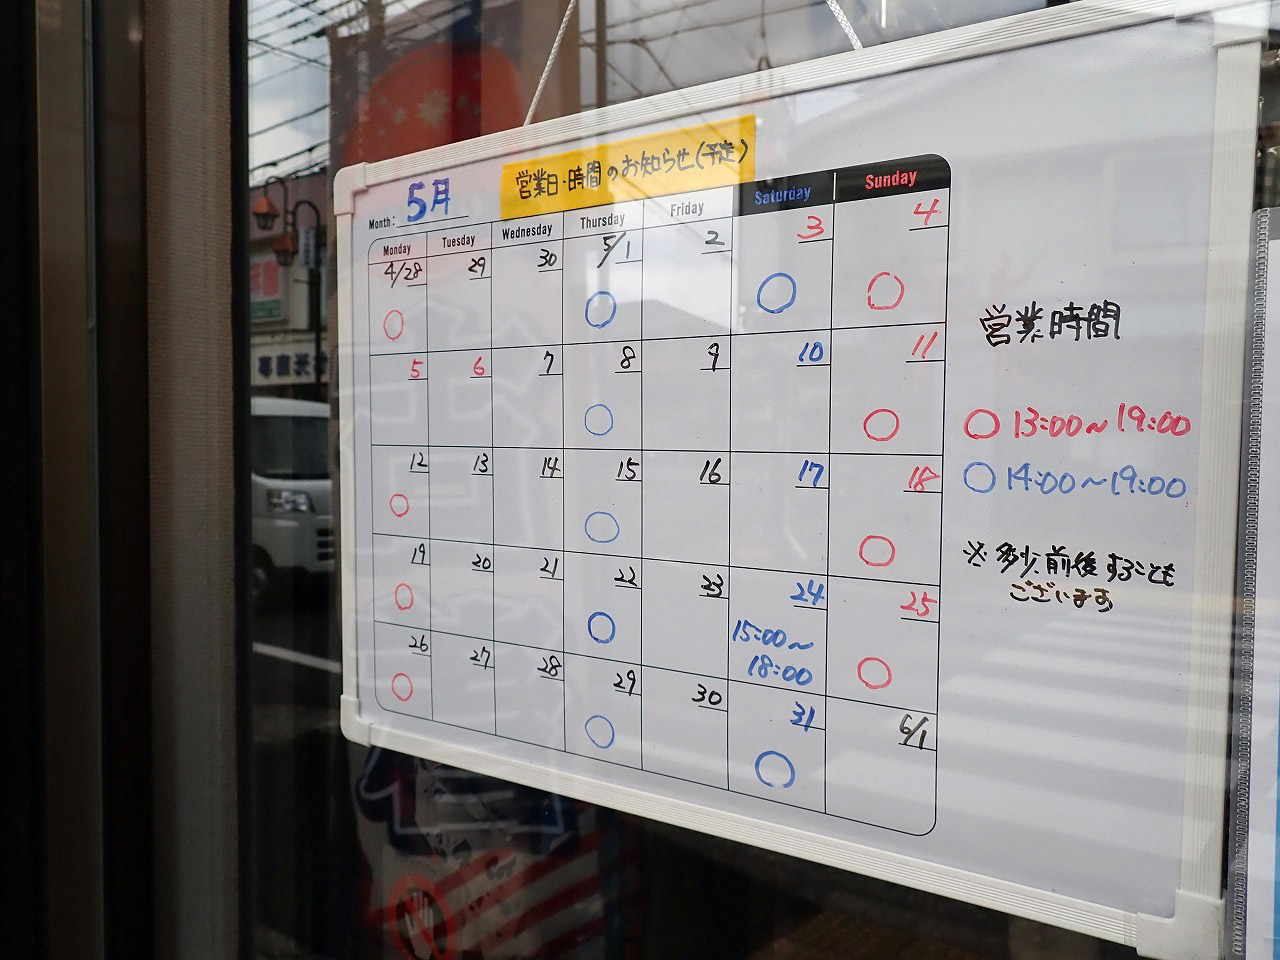 営業日・時間のお知らせ(予定)
Month: 5月
Monday Tuesday Wednesday Thursday Friday Saturday Sunday
4/28 29 30 5/1 2 3 4
○ ○ ○ ○
5 6 7 8 9 10 11
○ ○
12 13 14 15 16 17 18
○ ○ ○
19 20 21 22 23 24 25
○ ○ 15:00~ ○
18:00
26 27 28 29 30 31 6/1
○ ○ ○
営業時間
○ 13:00~19:00
○ 14:00~19:00
※ 多少、前後することも
ございます